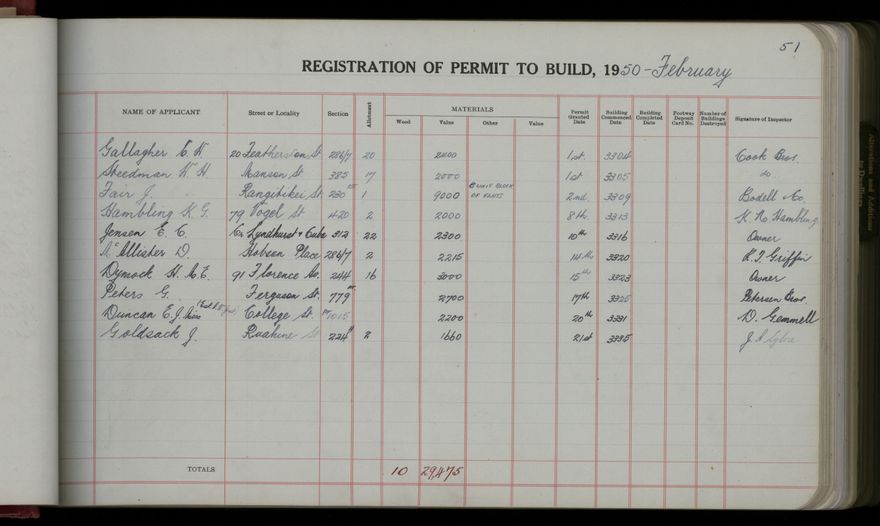 51
REGISTRATION OF PERMIT TO BUILD, 1950 - February
NAME OF APPLICANT Street or Locality Section Allotment MATERIALS Wood Value Other Value Permit Granted Date Building Commenced Date Building Completed Date Footway Deposit Card No. Number of Buildings Destroyed Signature of Inspector
Gallagher E. W. 20 Featherston St 286/7 20 2400 1st. 3304 Cook Bros.
Steedman W. H. Manson St 383 17 2000 1st 3305 do
Fair J. Rangitikei St. 230 1 9000 8 UNIT BLOCK OF FLATS 2nd. 3309 Bodell & Co.
Hambling K. G. 79 Vogel St 420 2 2000 8th. 3313 K. G. Hambling
Jensen E. C. Cr. Lyndhurst & Cuba 312 22 2300 10th 3316 Owner
McAllister D. Hobson Place 286/7 2 2215 14th 3320 R. J. Griffin
Dymock H. C. E. 91 Florence Av. 244 16 3000 15th 3323 Owner
Peters G. Ferguson St. 779 2700 17th 3325 Petersen Bros.
Duncan E. J. Miss College St. 1015 2200 20th 3331 D. Gemmell
Goldsack J. Ruahine St 224 2 1660 21st 3335 J. A.
TOTALS 10 29,475
Alterations and Additions to Dwellings